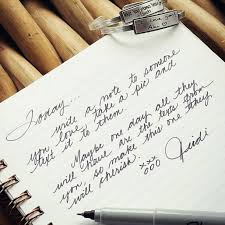 Today...
write a note to someone
you love, take a pic and
text it to them.
Maybe one day all they
will have are the texts from
you so make this one they
will cherish. xxx
ooo Heidi